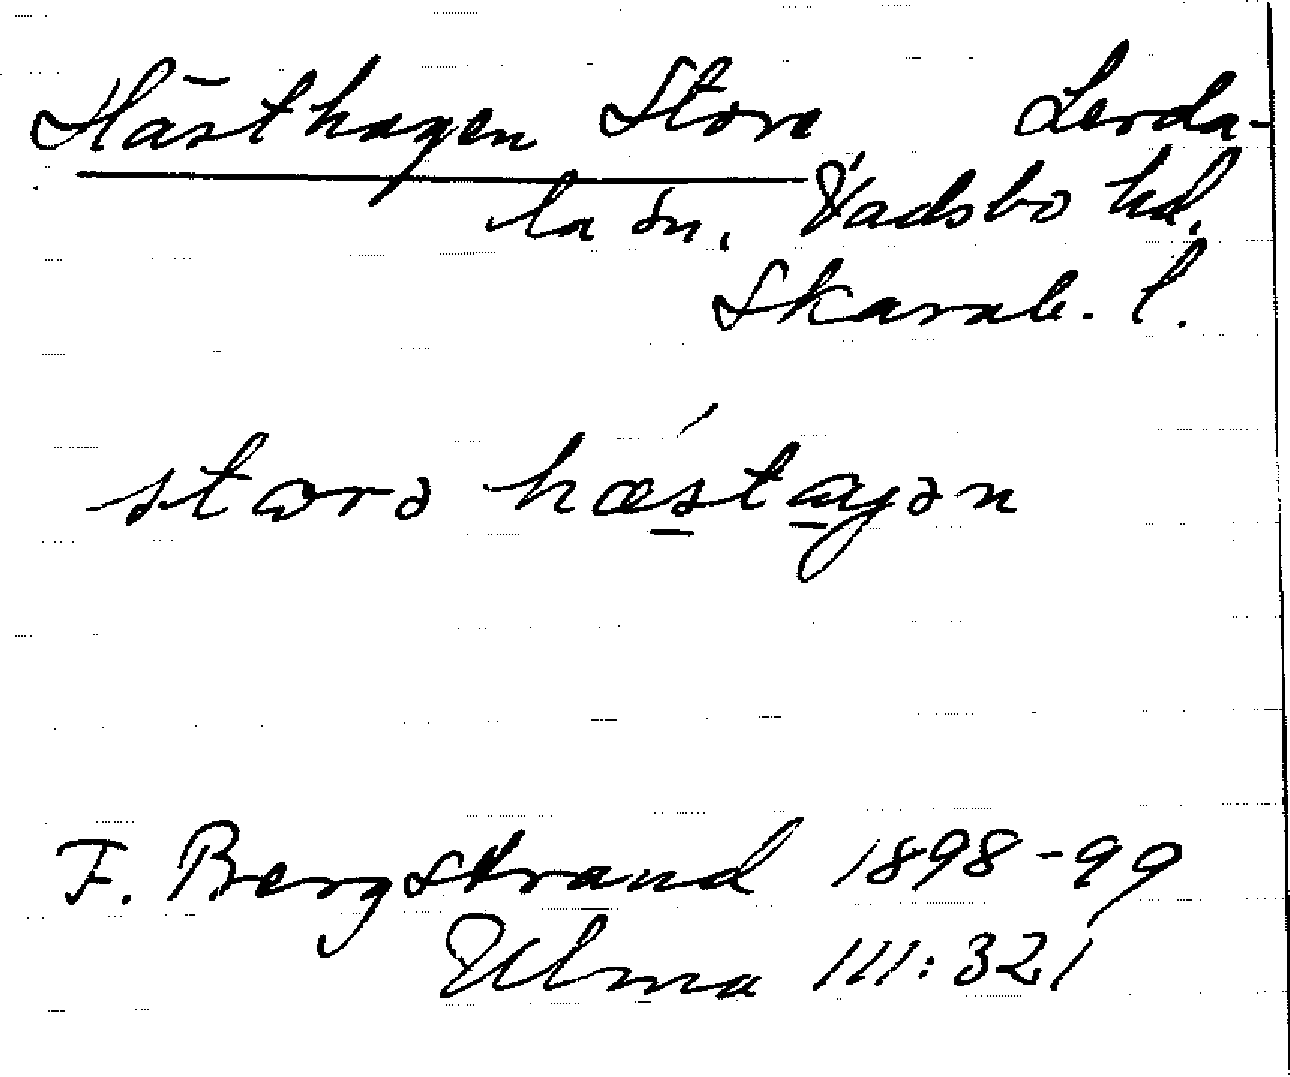 Hästhagen Stora Lerda-
la sn. Vadsbo hd.
Skarab. l.
storə hǽstagən
F. Bergstrand 1898-99
Ulma 111:321